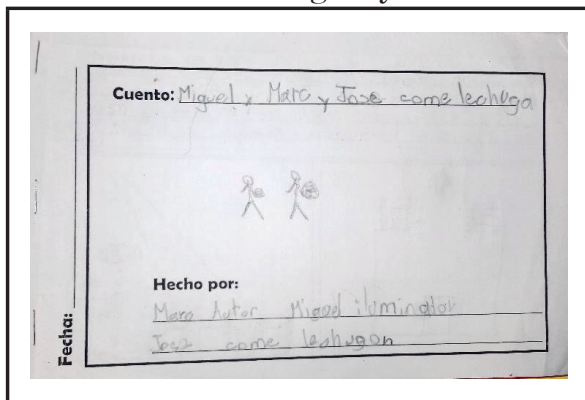 Cuento: Miguel y Marc y Jose come lechuga
Hecho por:
Marc Autor Miguel iluminador
Jose come lechugon
Fecha: